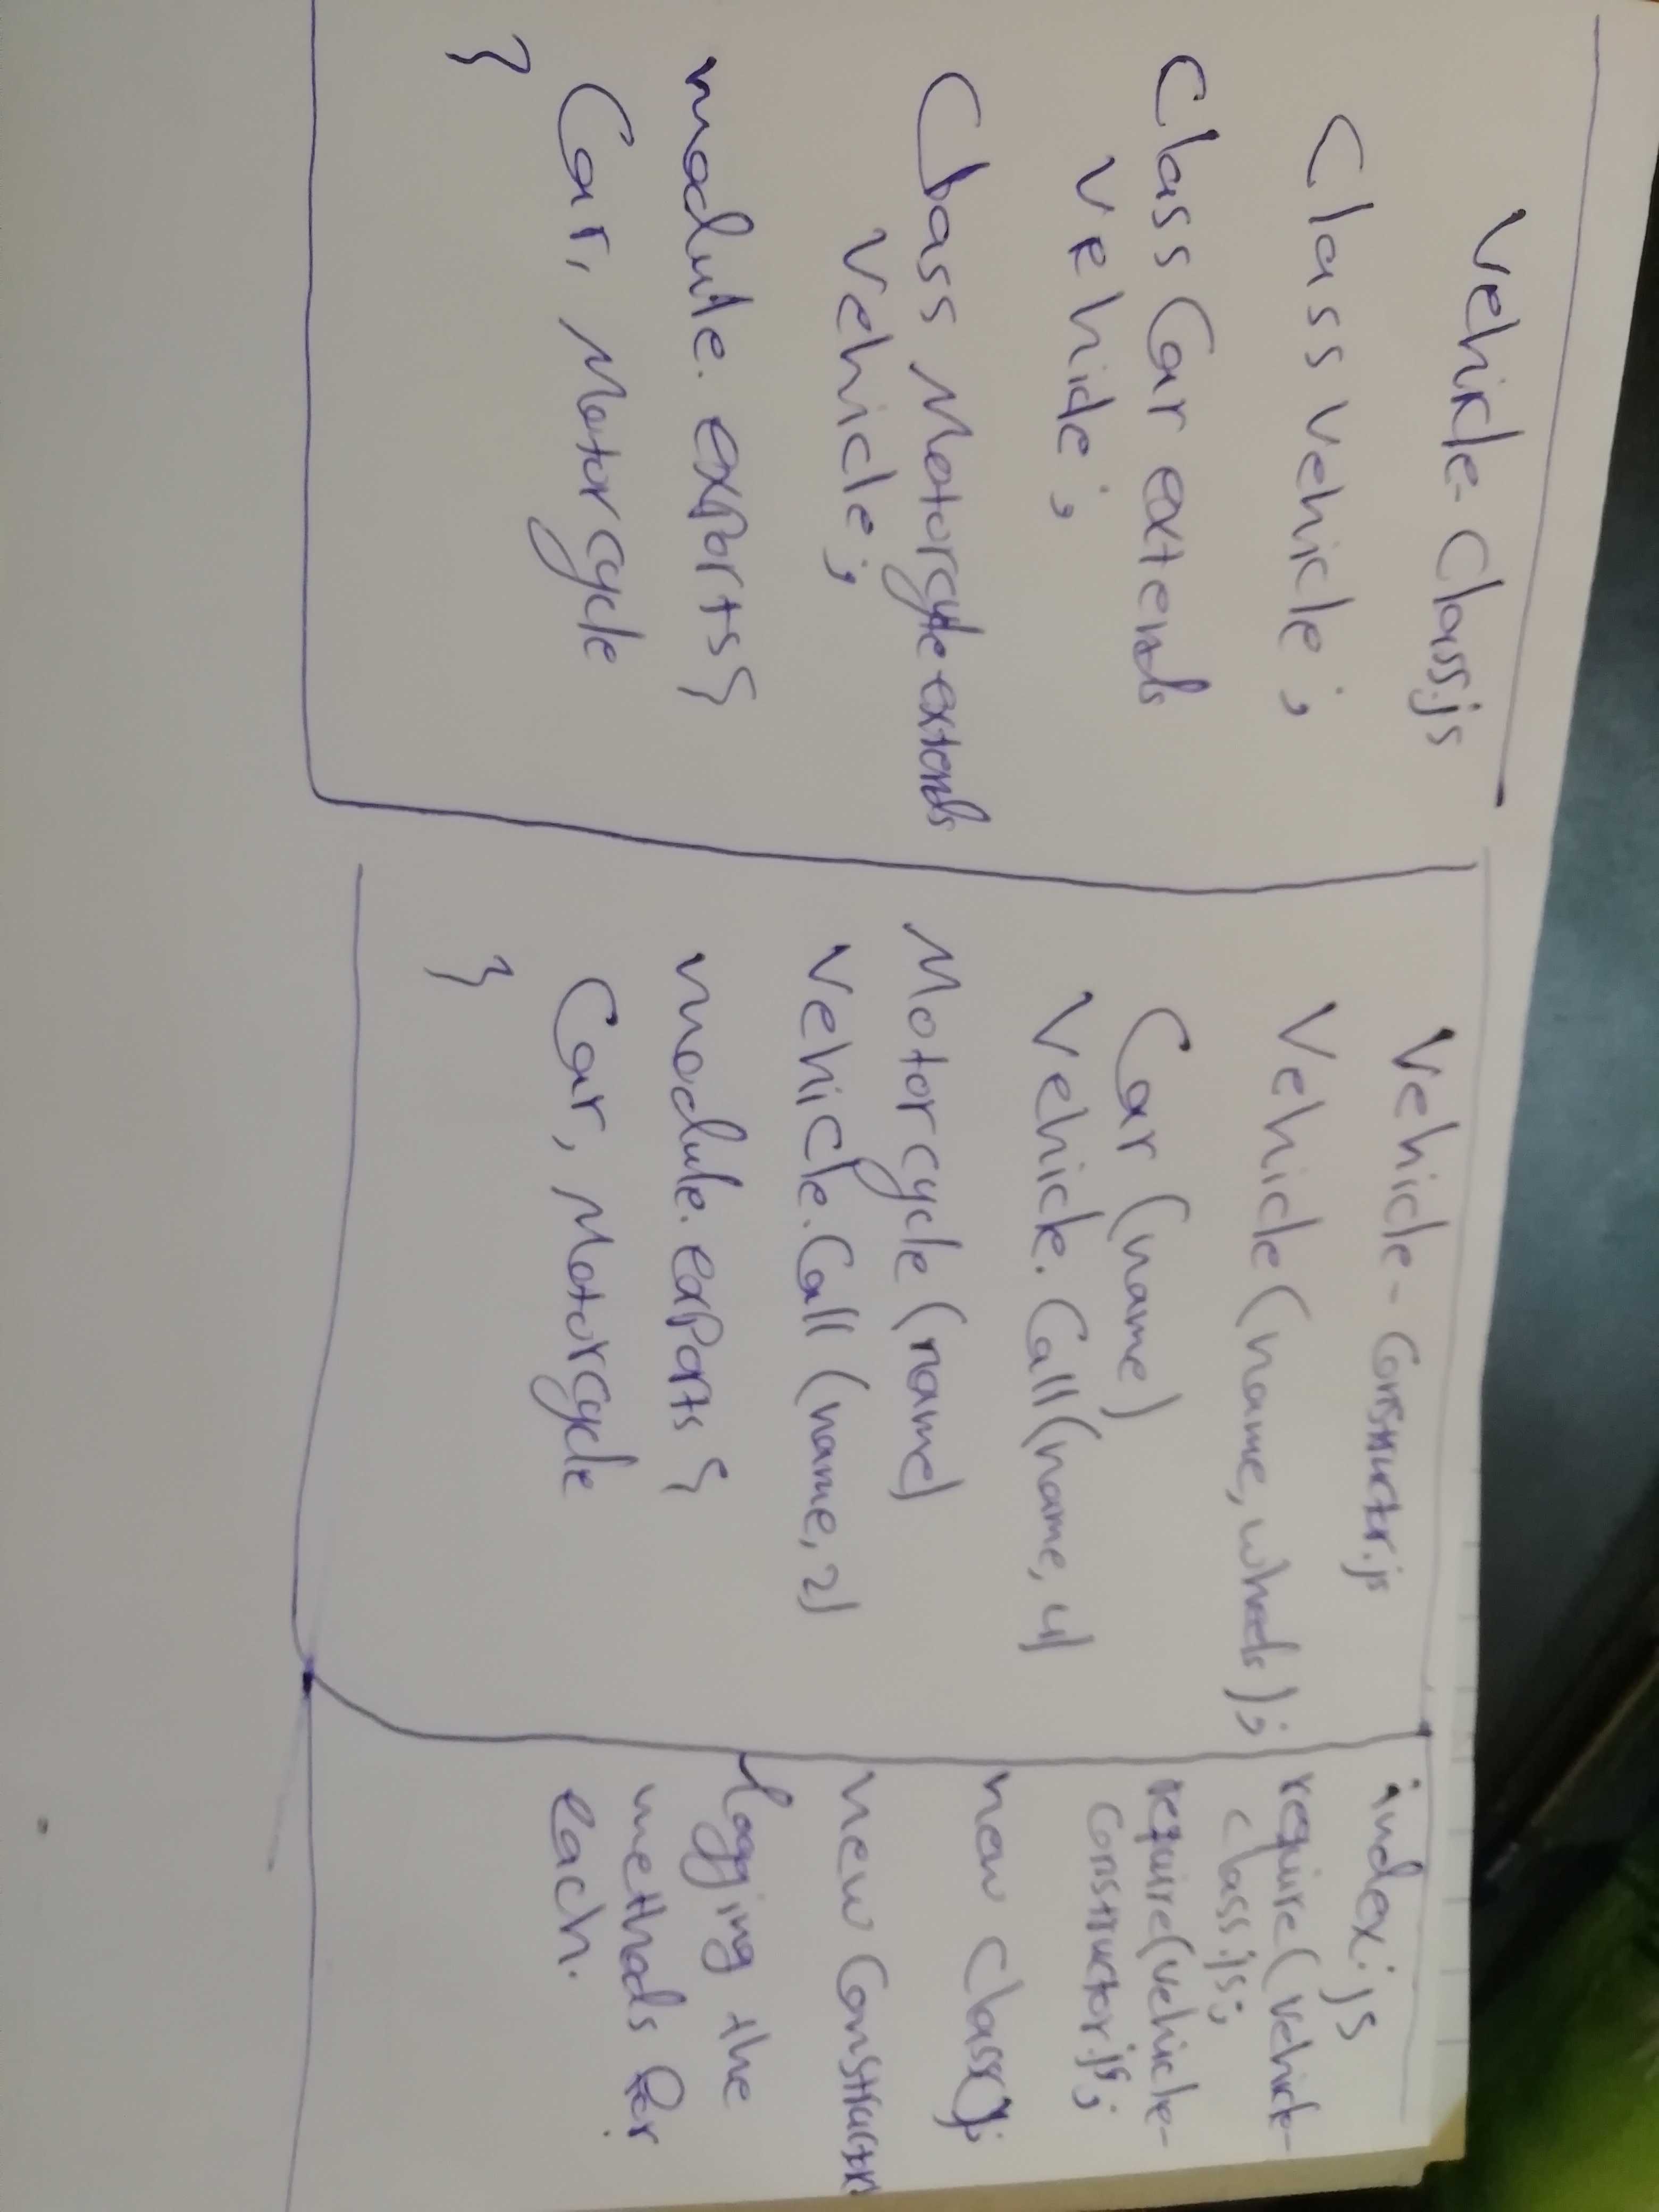 Vehicle-Class.js
Class Vehicle;
Class Car extends
Vehicle;
Class Motorcycle extends
Vehicle;
module.exports{
Car, Motorcycle
}
Vehicle-Constructor.js
Vehicle(name, wheels);
Car (name)
Vehicle.Call(name, 4)
Motorcycle (name)
Vehicle.Call (name, 2)
module.exports {
Car, Motorcycle
}
index.js
require(vehicle-
class.js;
require(vehicle-
constructor.js;
new class();
new Constructor
logging the
methods for
each.